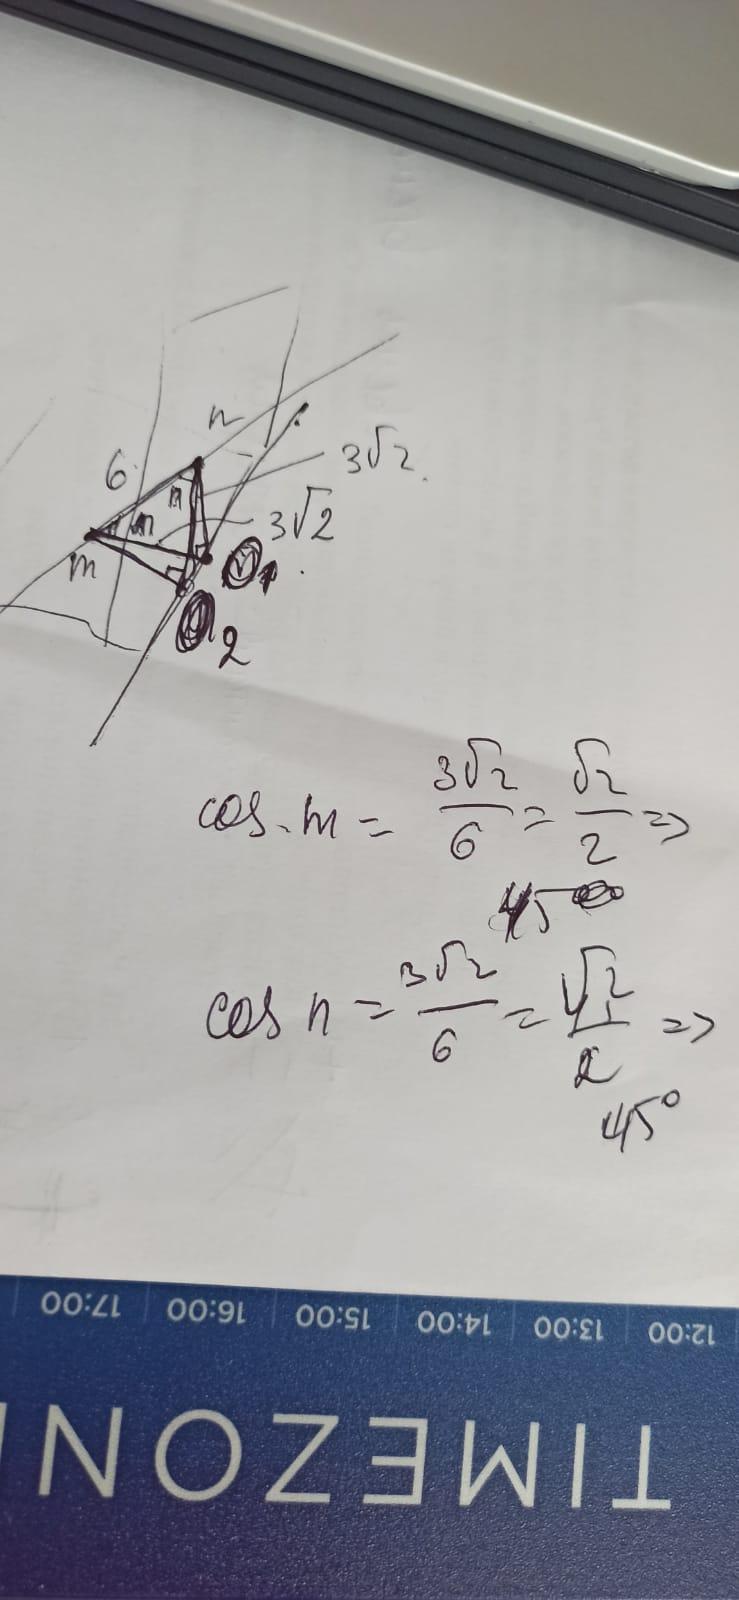 n
3√2.
6
n
m
3√2
m
1
2
cos m = 3√2/6 = √2/2 =>
45
cos n = 3√2/6 = √2/2 =>
45°
12:00 13:00 14:00 15:00 16:00 17:00
TIMEZON